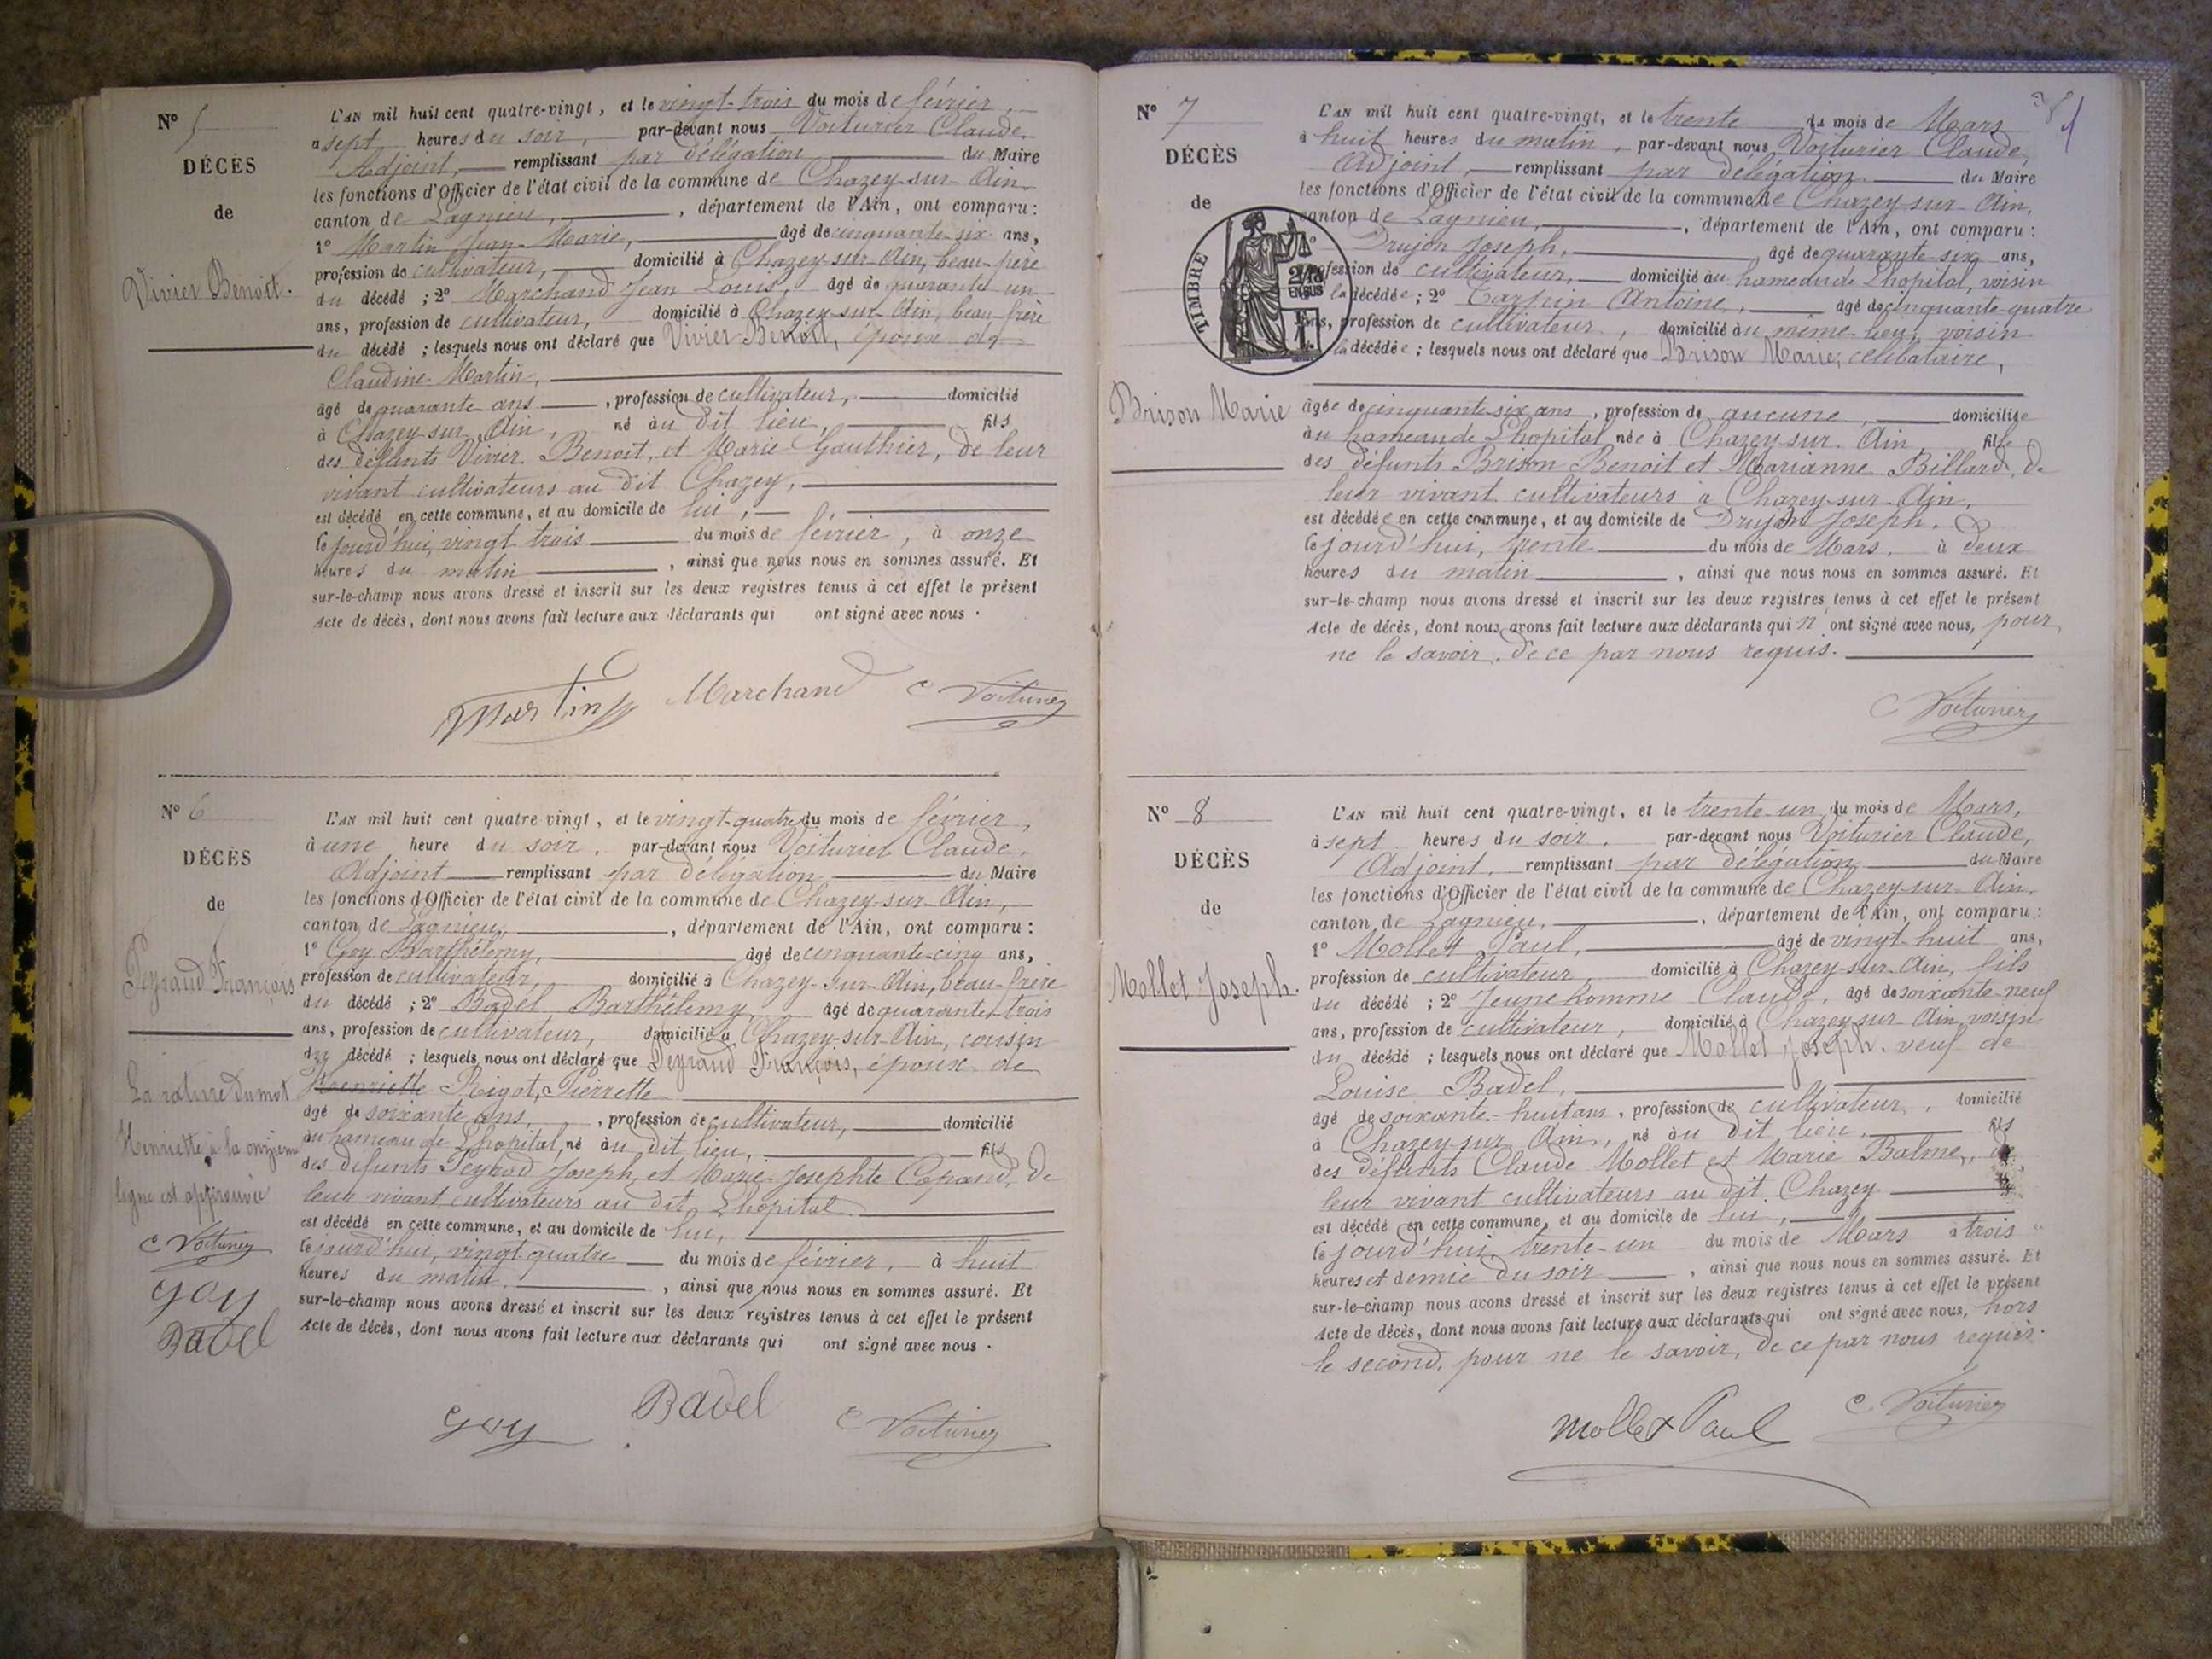 N° 5
DÉCÈS
de
Vivier Benoit.
L'AN mil huit cent quatre-vingt, et le vingt-trois du mois de février,
à sept heures du soir, par-devant nous Voiturier Claude,
Adjoint, remplissant par délégation du Maire
les fonctions d'Officier de l'état civil de la commune de Chazey-sur-Ain,
canton de Lagnieu, , département de l'Ain, ont comparu :
1° Martin Jean-Marie, âgé de cinquante-six ans,
profession de cultivateur, domicilié à Chazey-sur-Ain, beau-frère
du décédé ; 2° Marchand Jean Louis, âgé de quarante un
ans, profession de cultivateur, domicilié à Chazey-sur-Ain, beau-frère
du décédé ; lesquels nous ont déclaré que Vivier Benoit, époux de
Claudine Martin,
âgé de quarante ans , profession de cultivateur, domicilié
à Chazey-sur-Ain, né au dit lieu, fils
des défunts Vivier Benoit, et Marie Gauthier, de leur
vivant cultivateurs au dit Chazey,
est décédé en cette commune, et au domicile de lui,
le jourd'hui, vingt trois du mois de février, à onze
heures du matin , ainsi que nous nous en sommes assuré. Et
sur-le-champ nous avons dressé et inscrit sur les deux registres tenus à cet effet le présent
Acte de décès, dont nous avons fait lecture aux déclarants qui ont signé avec nous .
Martin Marchand C Voiturier
N° 6
DÉCÈS
de
Peyraud François
La rature du mot
Henriette à la onzième
ligne est approuvée
C Voiturier
Goy
Badel
L'AN mil huit cent quatre-vingt, et le vingt-quatre du mois de février,
à une heure du soir, par-devant nous Voiturier Claude,
Adjoint remplissant par délégation du Maire
les fonctions d'Officier de l'état civil de la commune de Chazey-sur-Ain,
canton de Lagnieu, , département de l'Ain, ont comparu :
1° Goy Barthélemy, âgé de cinquante-cinq ans,
profession de cultivateur, domicilié à Chazey-sur-Ain, beau-frère
du décédé ; 2° Badel Barthélemy, âgé de quarante trois
ans, profession de cultivateur, domicilié à Chazey-sur-Ain, cousin
du décédé ; lesquels nous ont déclaré que Peyraud François, époux de
Henriette Rigot, Pierrette
âgé de soixante ans, , profession de cultivateur, domicilié
au hameau de Lhopital, né au dit lieu, fils
des défunts Peyraud Joseph, et Marie-Josephte de
leur vivant cultivateurs au dit Lhopital
est décédé en cette commune, et au domicile de lui,
le jourd'hui, vingt quatre du mois de février, à huit
heures du matin , ainsi que nous nous en sommes assuré. Et
sur-le-champ nous avons dressé et inscrit sur les deux registres tenus à cet effet le présent
Acte de décès, dont nous avons fait lecture aux déclarants qui ont signé avec nous .
Goy Badel C Voiturier
N° 7
DÉCÈS
de
Brison Marie
TIMBRE
L'AN mil huit cent quatre-vingt, et le trente du mois de Mars
à huit heures du matin, par-devant nous Voiturier Claude,
Adjoint, remplissant par délégation du Maire
les fonctions d'Officier de l'état civil de la commune de Chazey-sur-Ain,
canton de Lagnieu, , département de l'Ain, ont comparu :
Drujon Joseph, âgé de quarante six ans,
profession de cultivateur, domicilié au hameau de Lhopital, voisin
de la décédée ; 2° Tarpin Antoine, âgé de cinquante-quatre
ans, profession de cultivateur, domicilié au même lieu, voisin
de la décédée ; lesquels nous ont déclaré que Brison Marie, célibataire,
âgée de cinquante-six ans , profession de aucune, domiciliée
au hameau de Lhopital née à Chazey-sur-Ain fille
des défunts Brison Benoit et Marianne Billard, de
leur vivant cultivateurs à Chazey-sur-Ain,
est décédée en cette commune, et au domicile de Drujon Joseph,
le jourd'hui, trente du mois de Mars, à deux
heures du matin , ainsi que nous nous en sommes assuré. Et
sur-le-champ nous avons dressé et inscrit sur les deux registres tenus à cet effet le présent
Acte de décès, dont nous avons fait lecture aux déclarants qui n'ont signé avec nous, pour
ne le savoir, de ce par nous requis.
C Voiturier
N° 8
DÉCÈS
de
Mollet Joseph.
L'AN mil huit cent quatre-vingt, et le trente-un du mois de Mars,
à sept heures du soir, par-devant nous Voiturier Claude,
Adjoint, remplissant par délégation du Maire
les fonctions d'Officier de l'état civil de la commune de Chazey-sur-Ain,
canton de Lagnieu, , département de l'Ain, ont comparu :
1° Mollet Paul, âgé de vingt huit ans,
profession de cultivateur, domicilié à Chazey-sur-Ain, fils
du décédé ; 2° Jeunehomme Claude, âgé de soixante-neuf
ans, profession de cultivateur, domicilié à Chazey-sur-Ain, voisin
du décédé ; lesquels nous ont déclaré que Mollet Joseph, veuf de
Louise Badel,
âgé de soixante-huit ans, profession de cultivateur, domicilié
à Chazey-sur-Ain, né au dit lieu, fils
des défunts Claude Mollet et Marie Balme, de
leur vivant cultivateurs au dit Chazey
est décédé en cette commune, et au domicile de lui,
le jourd'hui, trente-un du mois de Mars à trois
heures et demie du soir , ainsi que nous nous en sommes assuré. Et
sur-le-champ nous avons dressé et inscrit sur les deux registres tenus à cet effet le présent
Acte de décès, dont nous avons fait lecture aux déclarants qui ont signé avec nous, hors
le second, pour ne le savoir, de ce par nous requis.
Mollet Paul C. Voiturier